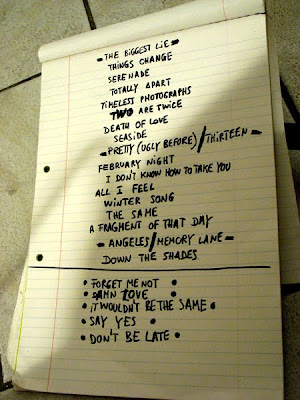 - THE BIGGEST LIE -
THINGS CHANGE
SERENADE
TOTALLY APART
TIMELESS PHOTOGRAPHS
TWO ARE TWICE
DEATH OF LOVE
SEASIDE
- PRETTY (UGLY BEFORE) / THIRTEEN -
FEBRUARY NIGHT
I DON'T KNOW HOW TO TAKE YOU
ALL I FEEL
WINTER SONG
THE SAME
A FRAGMENT OF THAT DAY
- ANGELES / MEMORY LANE -
DOWN THE SHADES
• FORGET ME NOT •
• DAMN LOVE •
• IT WOULDN'T BE THE SAME •
• SAY YES •
• DON'T BE LATE •